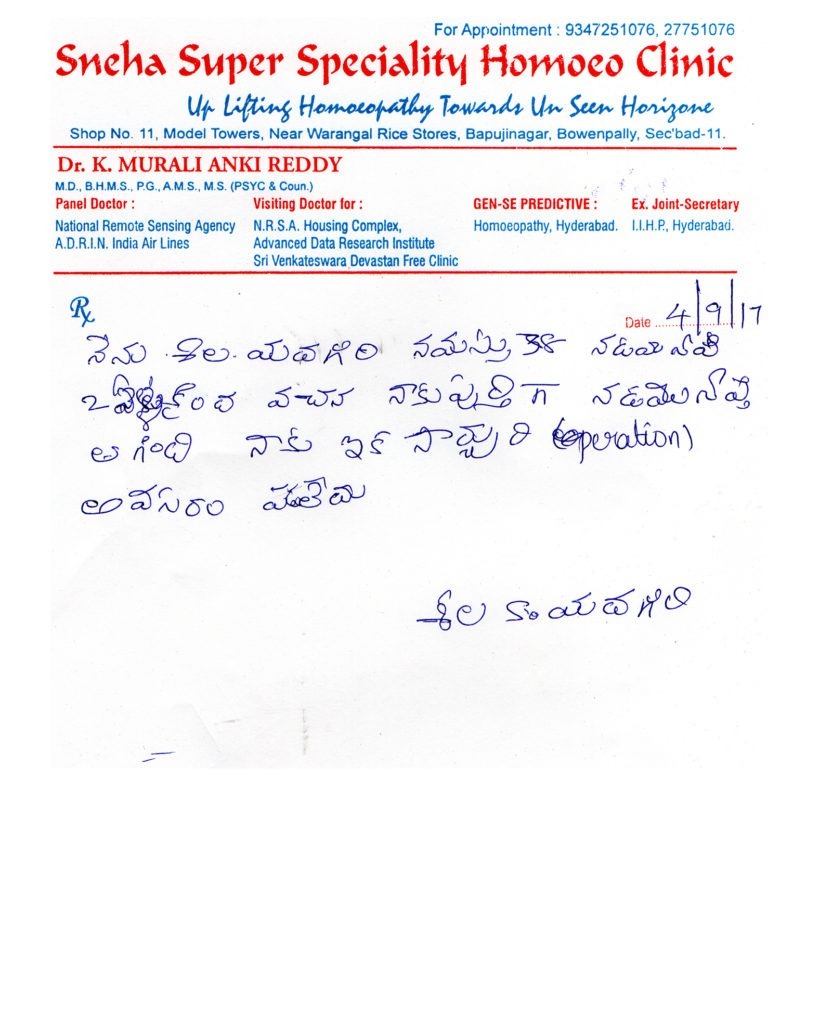 For Appointment : 9347251076, 27751076
Sneha Super Speciality Homoeo Clinic
Up Lifting Homoeopathy Towards Un Seen Horizone
Shop No. 11, Model Towers, Near Warangal Rice Stores, Bapujinagar, Bowenpally, Sec'bad-11.
Dr. K. MURALI ANKI REDDY
M.D., B.H.M.S., P.G., A.M.S., M.S. (PSYC & Coun.)
Panel Doctor : Visiting Doctor for : GEN-SE PREDICTIVE : Ex. Joint-Secretary
National Remote Sensing Agency N.R.S.A. Housing Complex, Homoeopathy, Hyderabad. I.I.H.P., Hyderabad.
A.D.R.I.N. India Air Lines Advanced Data Research Institute
Sri Venkateswara Devastan Free Clinic
Rx
Date 4/9/17
నేను నమస్తు 38
2 వచన నాకు పుర్తి గా
ఆగింది నాకు ఇక (operation)
అవసరం